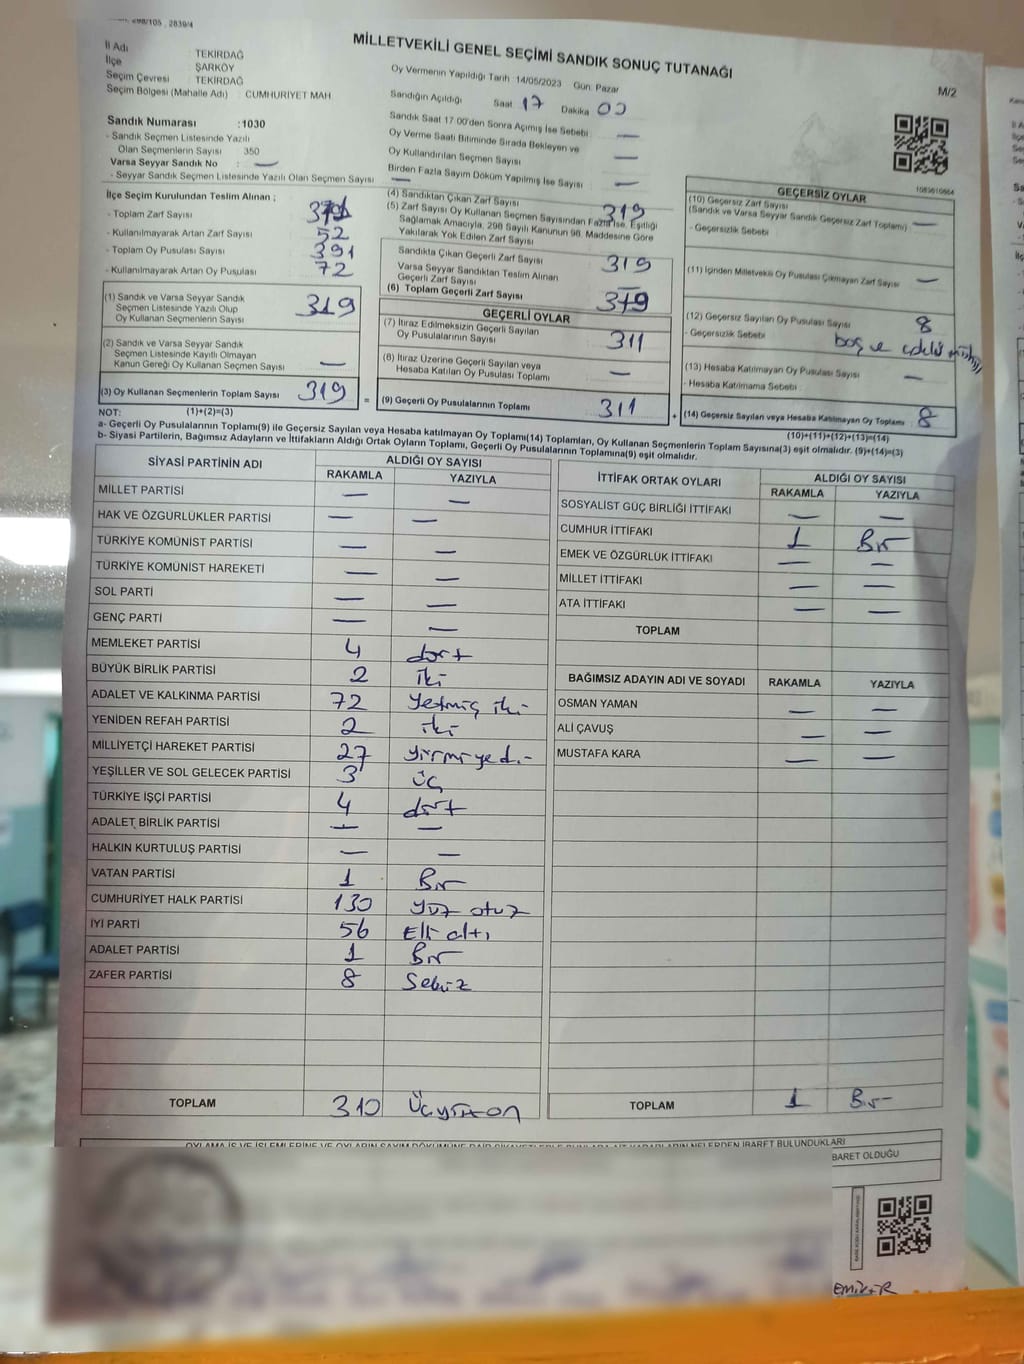 298/105 , 2839/4
MİLLETVEKİLİ GENEL SEÇİMİ SANDIK SONUÇ TUTANAĞI
M/2
İl Adı TEKİRDAĞ
İlçe ŞARKÖY
Seçim Çevresi TEKİRDAĞ
Seçim Bölgesi (Mahalle Adı) : CUMHURİYET MAH.
Oy Vermenin Yapıldığı Tarih :14/05/2023 Gün: Pazar
Sandığın Açıldığı Saat 17 Dakika 00
Sandık Saat 17:00'den Sonra Açımış İse Sebebi : —
Oy Verme Saati Bitiminde Sırada Bekleyen ve
Oy Kullandırılan Seçmen Sayısı —
Birden Fazla Sayım Döküm Yapılmış İse Sayısı —
Sandık Numarası :1030
- Sandık Seçmen Listesinde Yazılı
Olan Seçmenlerin Sayısı 350
Varsa Seyyar Sandık No : —
- Seyyar Sandık Seçmen Listesinde Yazılı Olan Seçmen Sayısı —
İlçe Seçim Kurulundan Teslim Alınan ;
- Toplam Zarf Sayısı
- Kullanılmayarak Artan Zarf Sayısı 52
- Toplam Oy Pusulası Sayısı 391
- Kullanılmayarak Artan Oy Pusulası 72
(1) Sandık ve Varsa Seyyar Sandık
Seçmen Listesinde Yazılı Olup
Oy Kullanan Seçmenlerin Sayısı 319
(2) Sandık ve Varsa Seyyar Sandık
Seçmen Listesinde Kayıtlı Olmayan
Kanun Gereği Oy Kullanan Seçmen Sayısı —
(3) Oy Kullanan Seçmenlerin Toplam Sayısı 319 =
(4) Sandıktan Çıkan Zarf Sayısı 319
(5) Zarf Sayısı Oy Kullanan Seçmen Sayısından Fazla İse, Eşitliği
Sağlamak Amacıyla, 298 Sayılı Kanunun 98. Maddesine Göre
Yakılarak Yok Edilen Zarf Sayısı
Sandıkta Çıkan Geçerli Zarf Sayısı 319
Varsa Seyyar Sandıktan Teslim Alınan
Geçerli Zarf Sayısı —
(6) Toplam Geçerli Zarf Sayısı 319
GEÇERLİ OYLAR
(7) İtiraz Edilmeksizin Geçerli Sayılan
Oy Pusulalarının Sayısı 311
(8) İtiraz Üzerine Geçerli Sayılan veya
Hesaba Katılan Oy Pusulası Toplamı —
(9) Geçerli Oy Pusulalarının Toplamı 311 +
1083610864
GEÇERSİZ OYLAR
(10) Geçersiz Zarf Sayısı
(Sandık ve Varsa Seyyar Sandık Geçersiz Zarf Toplamı) —
- Geçersizlik Sebebi
(11) İçinden Milletvekili Oy Pusulası Çıkmayan Zarf Sayısı —
(12) Geçersiz Sayılan Oy Pusulası Sayısı 8
- Geçersizlik Sebebi boş ve
(13) Hesaba Katılmayan Oy Pusulası Sayısı —
- Hesaba Katmama Sebebi
(14) Geçersiz Sayılan veya Hesaba Katılmayan Oy Toplamı 8
NOT: (1)+(2)=(3)
(10)+(11)+(12)+(13)=(14)
a- Geçerli Oy Pusulalarının Toplamı(9) ile Geçersiz Sayılan veya Hesaba katılmayan Oy Toplamı(14) Toplamları, Oy Kullanan Seçmenlerin Toplam Sayısına(3) eşit olmalıdır. (9)+(14)=(3)
b- Siyasi Partilerin, Bağımsız Adayların ve İttifakların Aldığı Ortak Oyların Toplamı, Geçerli Oy Pusulalarının Toplamına(9) eşit olmalıdır.
SİYASİ PARTİNİN ADI ALDIĞI OY SAYISI
RAKAMLA YAZIYLA
MİLLET PARTİSİ — —
HAK VE ÖZGÜRLÜKLER PARTİSİ — —
TÜRKİYE KOMÜNİST PARTİSİ — —
TÜRKİYE KOMÜNİST HAREKETİ — —
SOL PARTİ — —
GENÇ PARTİ — —
MEMLEKET PARTİSİ 4 dört
BÜYÜK BİRLİK PARTİSİ 2 iki
ADALET VE KALKINMA PARTİSİ 72 Yetmiş iki
YENİDEN REFAH PARTİSİ 2 iki
MİLLİYETÇİ HAREKET PARTİSİ 27 yirmi yedi
YEŞİLLER VE SOL GELECEK PARTİSİ 3 üç
TÜRKİYE İŞÇİ PARTİSİ 4 dört
ADALET BİRLİK PARTİSİ — —
HALKIN KURTULUŞ PARTİSİ — —
VATAN PARTİSİ 1 Bir
CUMHURİYET HALK PARTİSİ 130 Yüz otuz
İYİ PARTİ 56 Elli altı
ADALET PARTİSİ 1 Bir
ZAFER PARTİSİ 8 Sekiz
TOPLAM 310 Üçyüzon
İTTİFAK ORTAK OYLARI ALDIĞI OY SAYISI
RAKAMLA YAZIYLA
SOSYALİST GÜÇ BİRLİĞİ İTTİFAKI — —
CUMHUR İTTİFAKI 1 Bir
EMEK VE ÖZGÜRLÜK İTTİFAKI — —
MİLLET İTTİFAKI — —
ATA İTTİFAKI — —
TOPLAM
BAĞIMSIZ ADAYIN ADI VE SOYADI RAKAMLA YAZIYLA
OSMAN YAMAN — —
ALİ ÇAVUŞ — —
MUSTAFA KARA — —
TOPLAM 1 Bir
BARET OLDUĞU